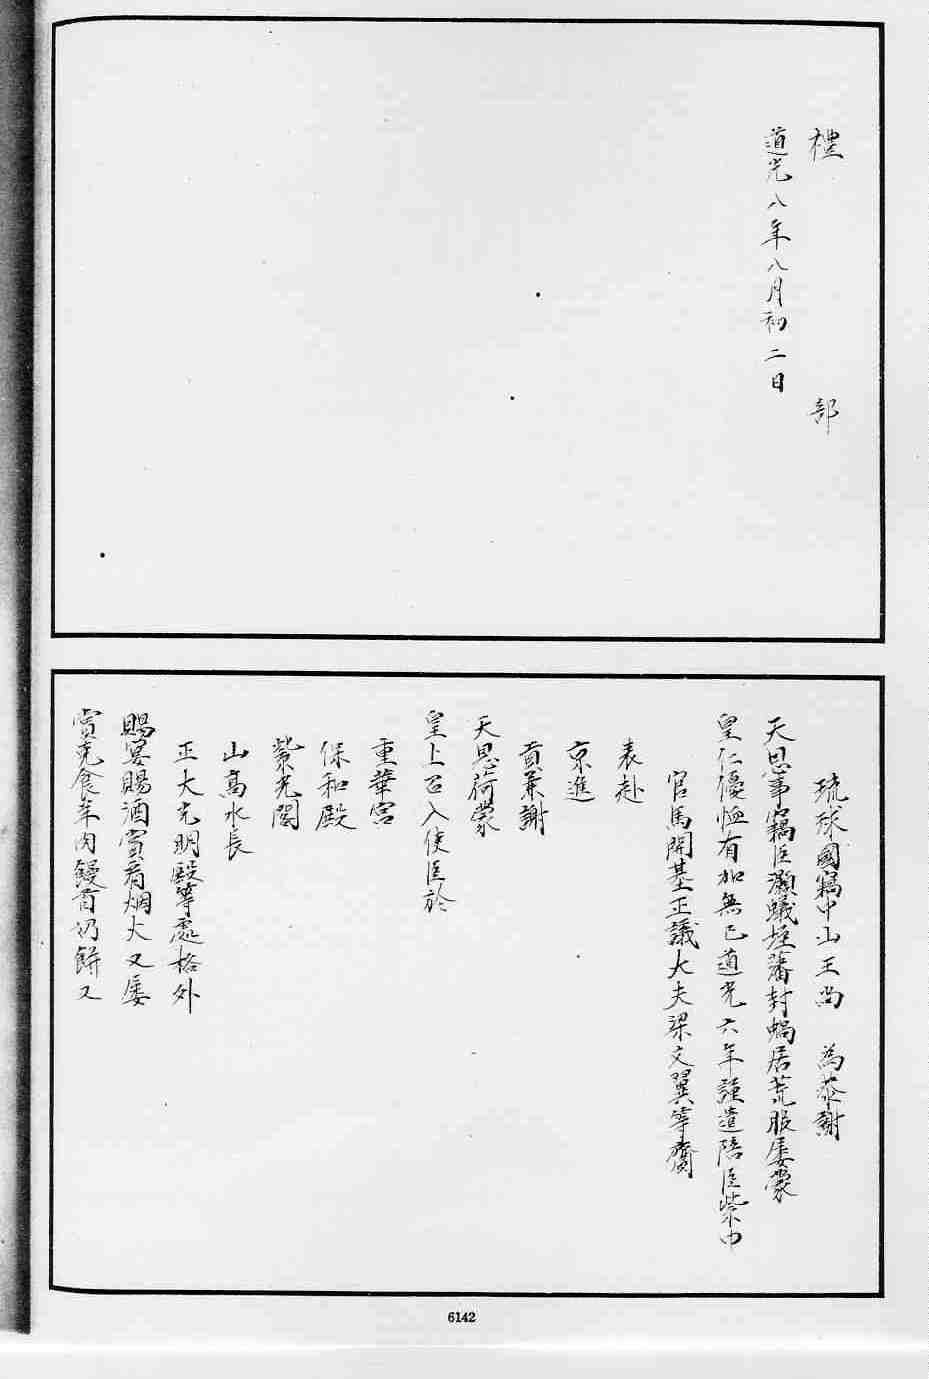 禮 部
道光八年八月初二日
琉球國竊中山王尚 為恭謝
天恩事竊臣灝蟻垤藩封蝸居荒服屢蒙
皇仁優恤有加無已道光六年謹遣陪臣紫巾
官馬開基正議大夫梁文翼等齎
表赴
京進
貢兼謝
天恩荷蒙
皇上召入使臣於
重華宮
保和殿
紫光閣
山高水長
正大光明殿等處格外
賜宴賜酒賞看烟火又屢
賞克食羊肉饅首奶餅又
6142